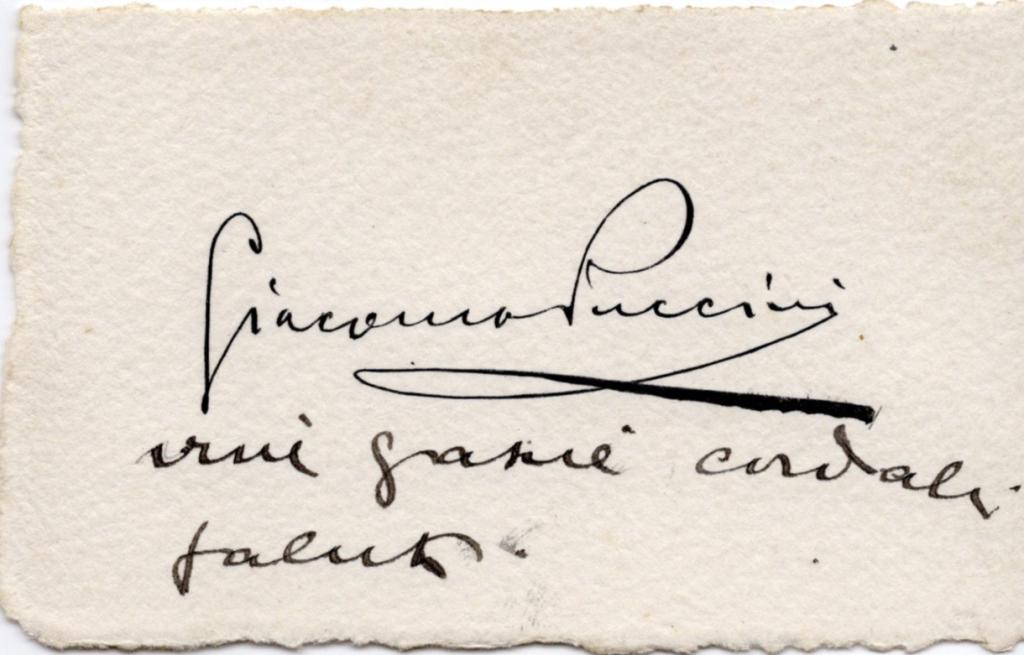 Giacomo Puccini
grazie cordiali
saluti